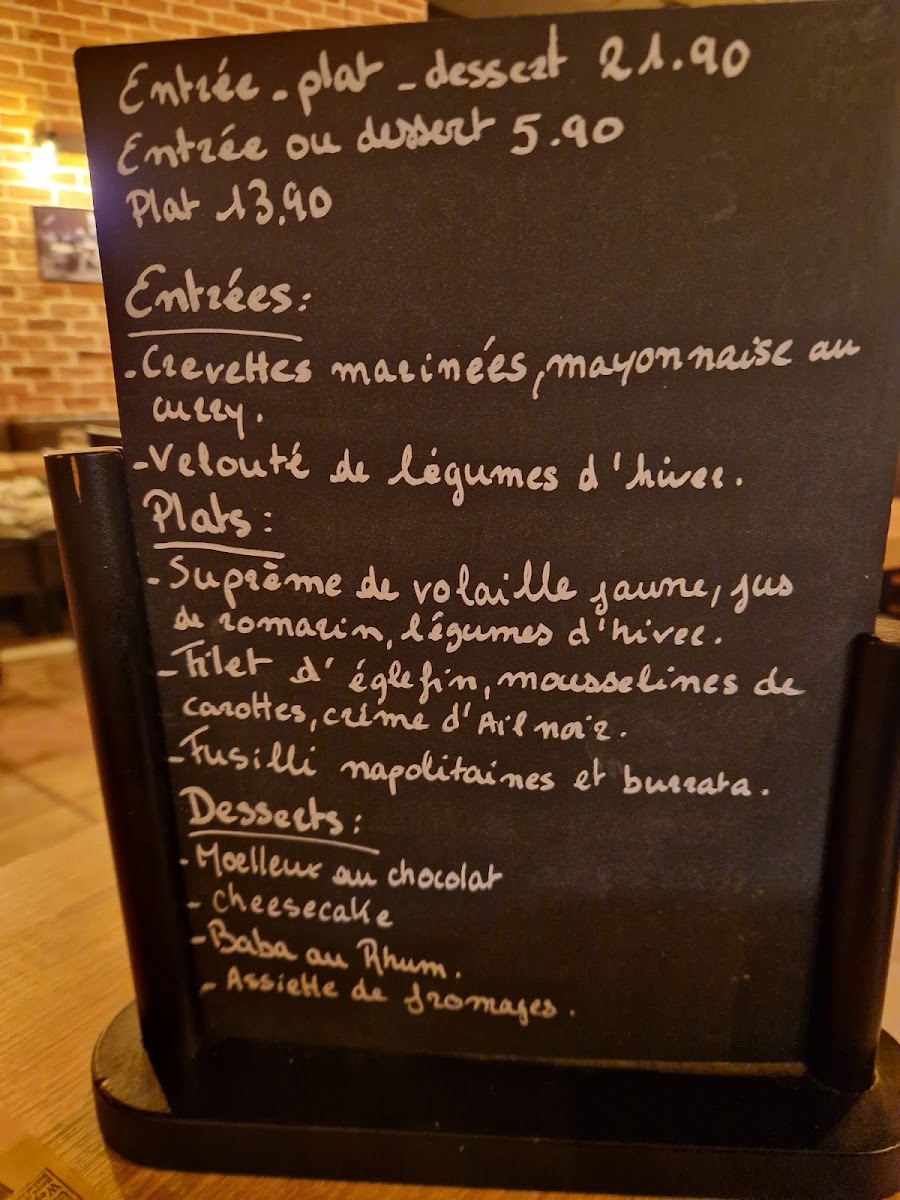 Entrée - plat - dessert 21.90
Entrée ou dessert 5.90
Plat 13.90
Entrées:
- Crevettes marinées, mayonnaise au
curry.
- Velouté de légumes d'hiver.
Plats:
- Suprême de volaille jaune, jus
de romarin, légumes d'hiver.
- Filet d'églefin, mousselines de
carottes, crème d'Ail noir.
- Fusilli napolitaines et burrata.
Desserts:
- Moelleux au chocolat
- Cheesecake
- Baba au Rhum.
- Assiette de fromages.